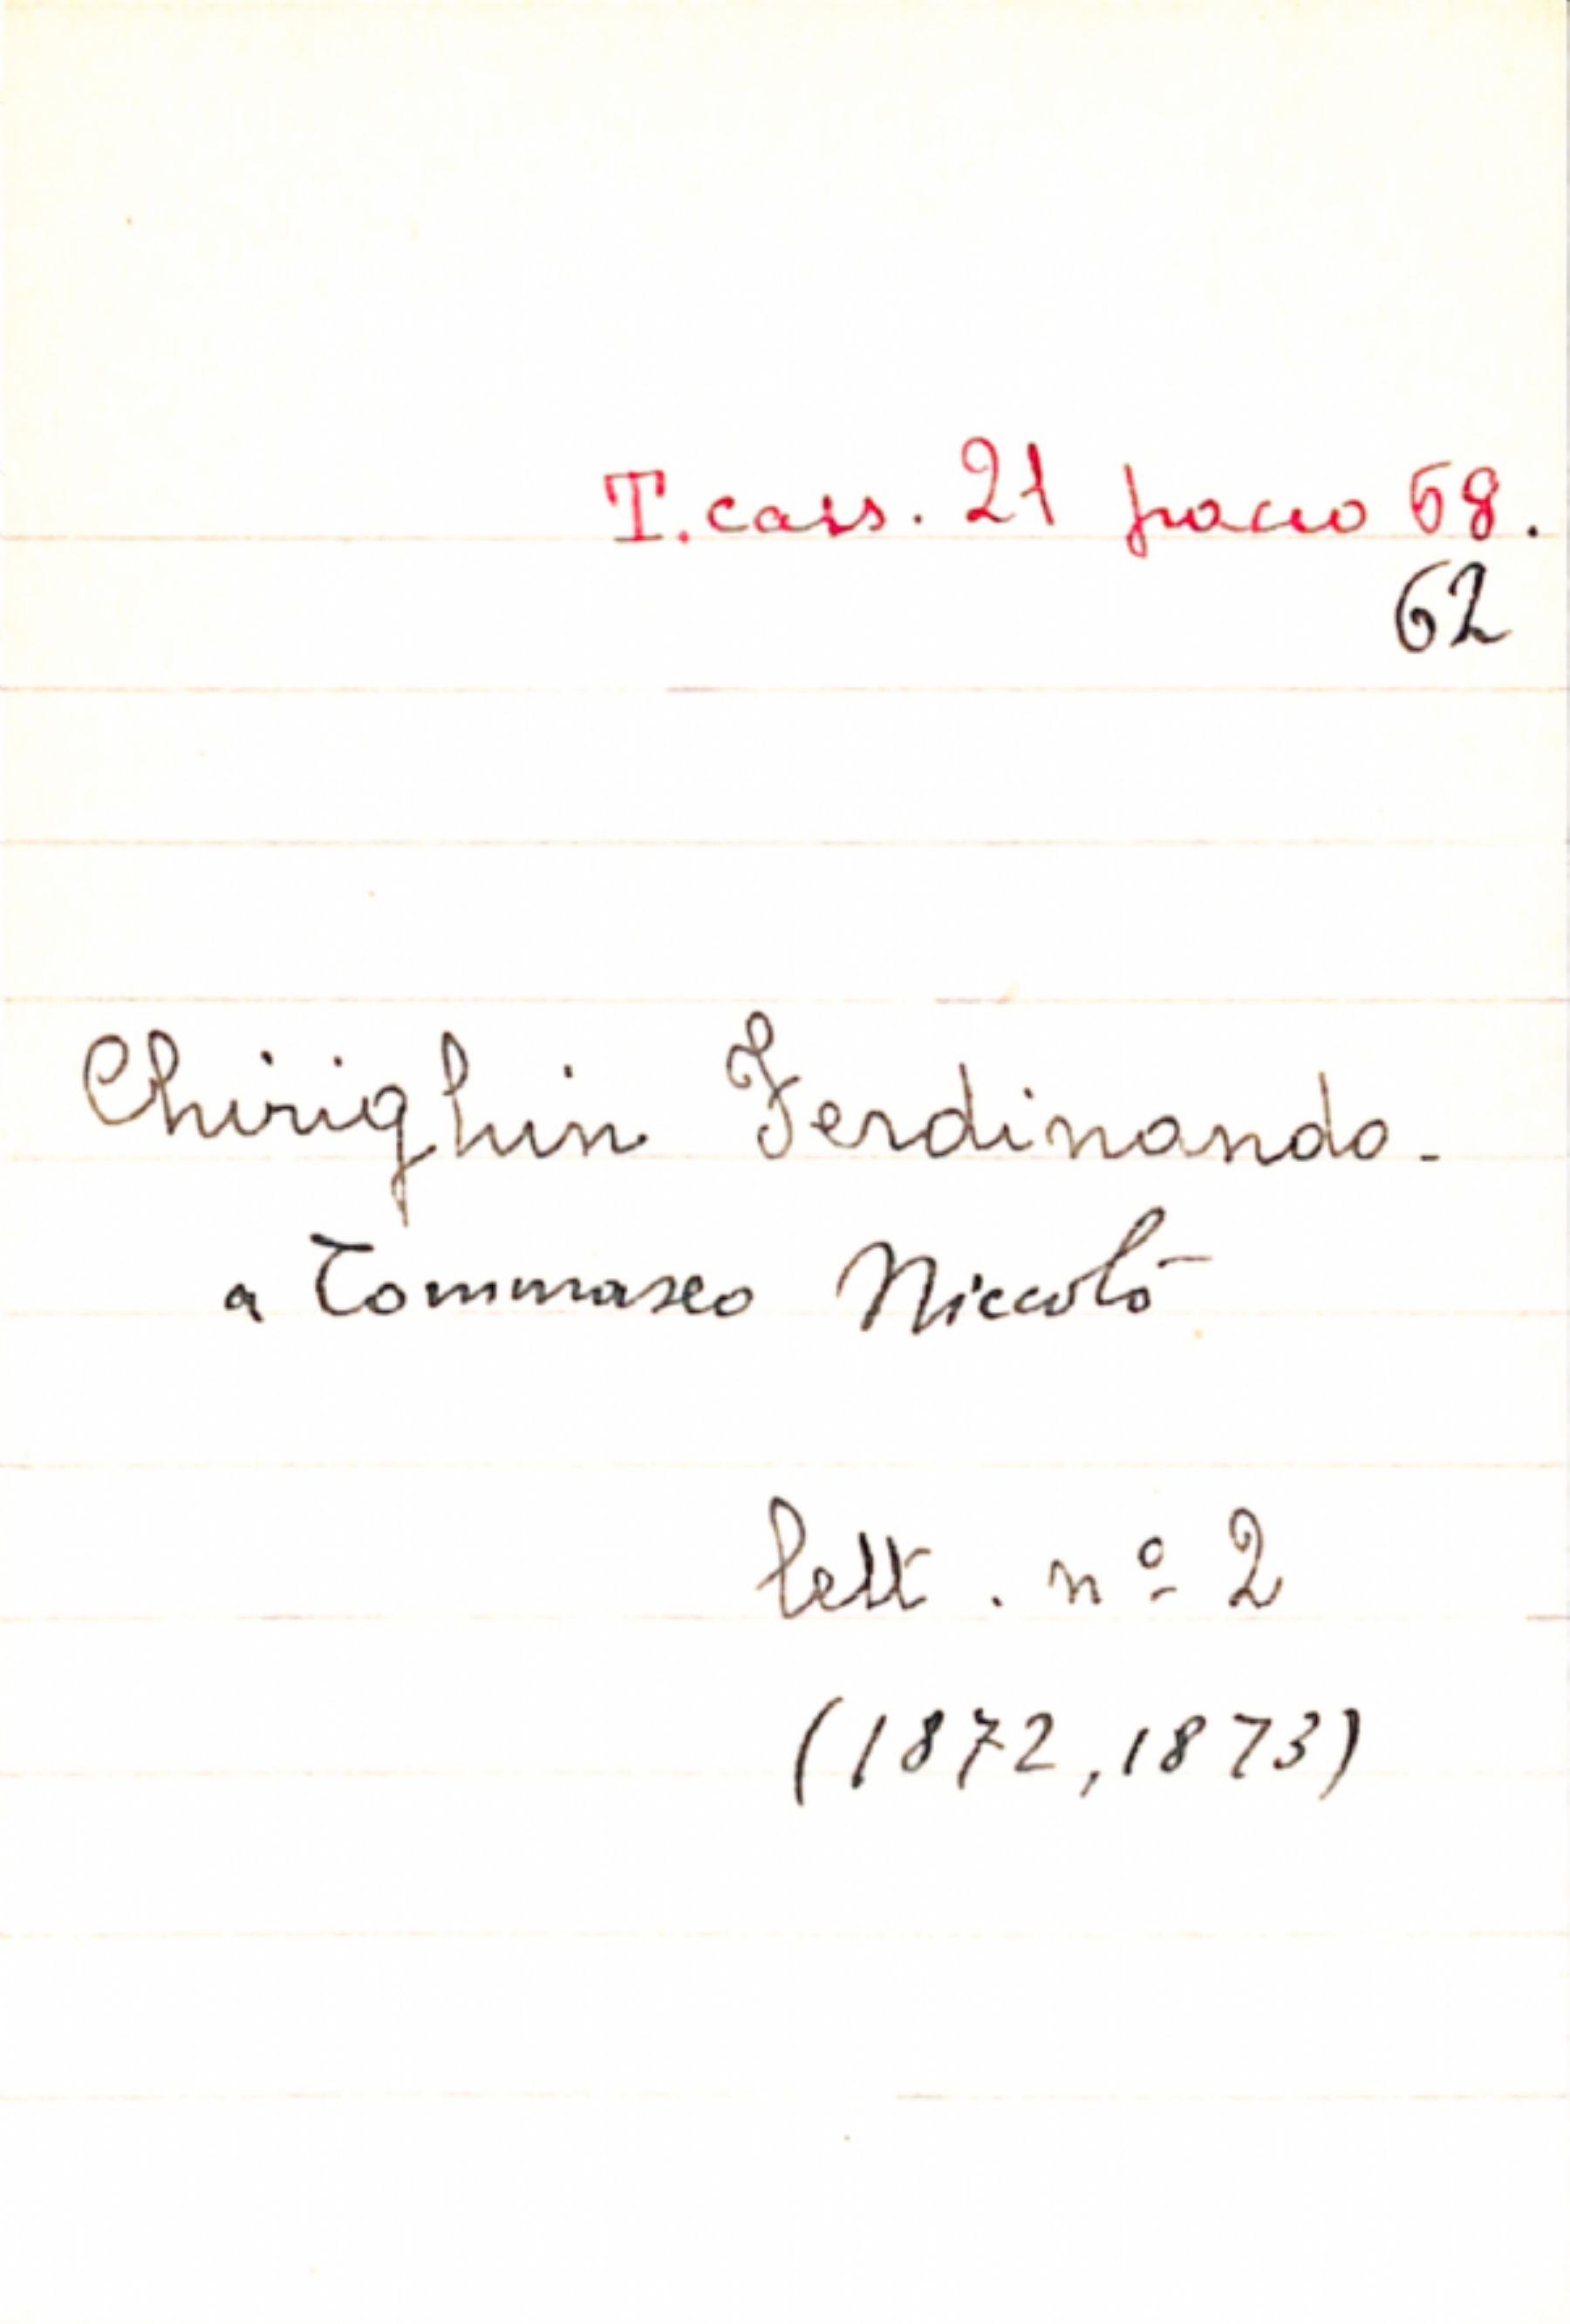 T. cass. 21 pacco 68.
62
Chirighin Ferdinando -
a Tommaseo Niccolò
lett. nº 2
(1872, 1873)